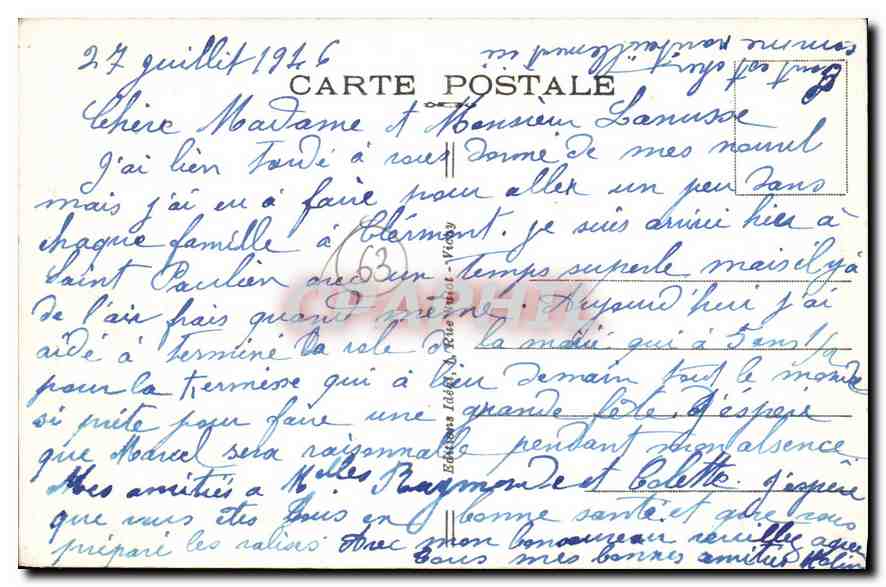 27 juillit 1946
CARTE POSTALE
Chère Madame et Monsieur Lanusse
J'ai bien tardé à vous donné de mes nouvel
mais j'ai eu à faire pour aller un peu dans
chaque famille à Clérmont. je suis arrivi hier à
Saint Paulien avec un temps superbe mais il y à
de l'air frais quand même. Aujourd'hui j'ai
aidé à terminé la robe de la marié qui à 5 ans 1/2
pour la Kermesse qui à lieu demain tout le monde
si prête pour faire une grande fête. J'éspère
que Marcel sera raisonnable pendant mon absence.
Mes amitiés a Melles Raymonde et Colette. J'éspère
que vous êtes tous en bonne santé et que vous
préparé les valises. Avec mon bon souveau veuillez agrée
tous mes bonnes amitiés
tout est cher
comme ravitaillement ici
63
CPAPHIL
Editions Idéal, 1, Rue - Vichy